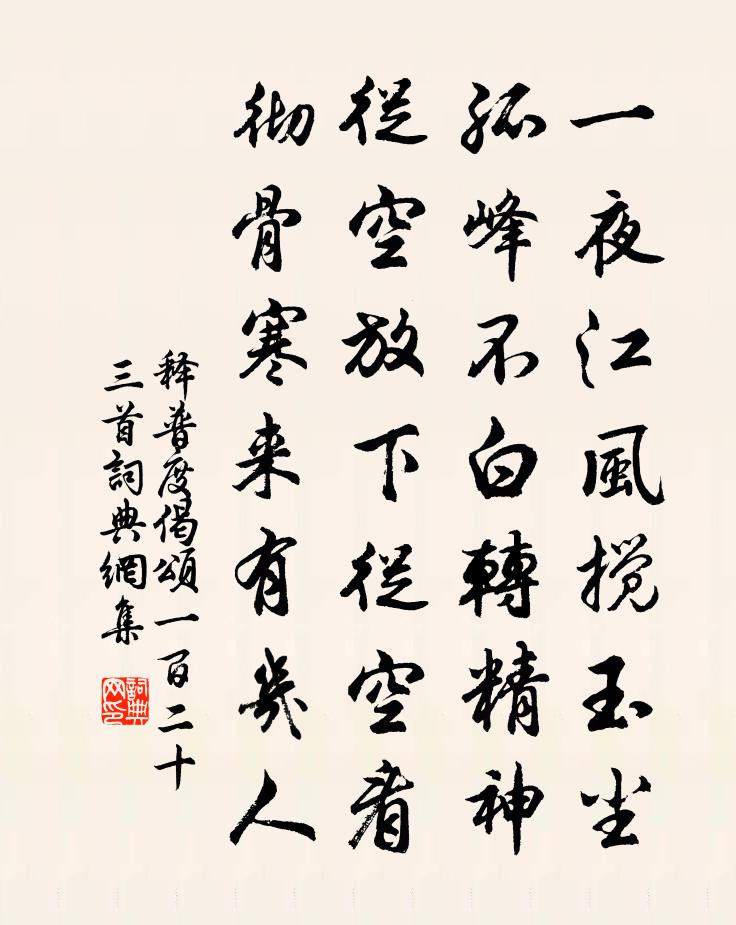 一夜江風搅玉尘
孤峰不白轉精神
從空放下從空看
彻骨寒来有幾人
释普度偈頌一百二十
三首詞典網集
詞典网印